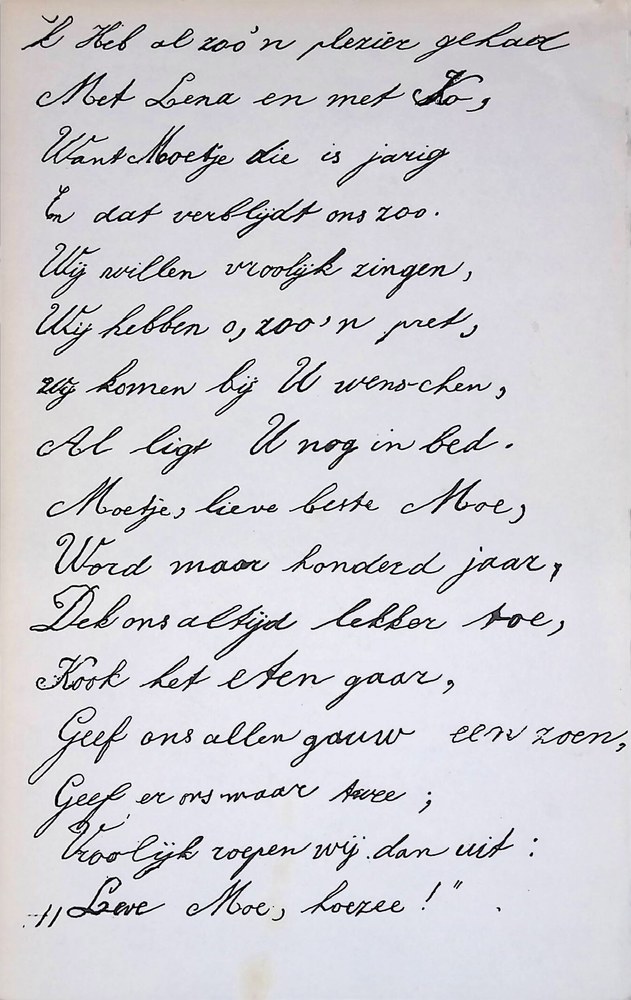 'k Heb al zoo'n plezier gehad
Met Lena en met Ko,
Want Moetje die is jarig
En dat verblijdt ons zoo.
Wij willen vroolijk zingen,
Wij hebben o, zoo'n pret,
wij komen bij U wenschen,
Al ligt U nog in bed.
Moetje, lieve beste Moe,
Word maar honderd jaar,
Dek ons altijd lekker toe,
Kook het eten gaar,
Geef ons allen gauw een zoen,
Geef er ons maar twee;
Vroolijk roepen wij dan uit:
„Lieve Moe, hoezee!".